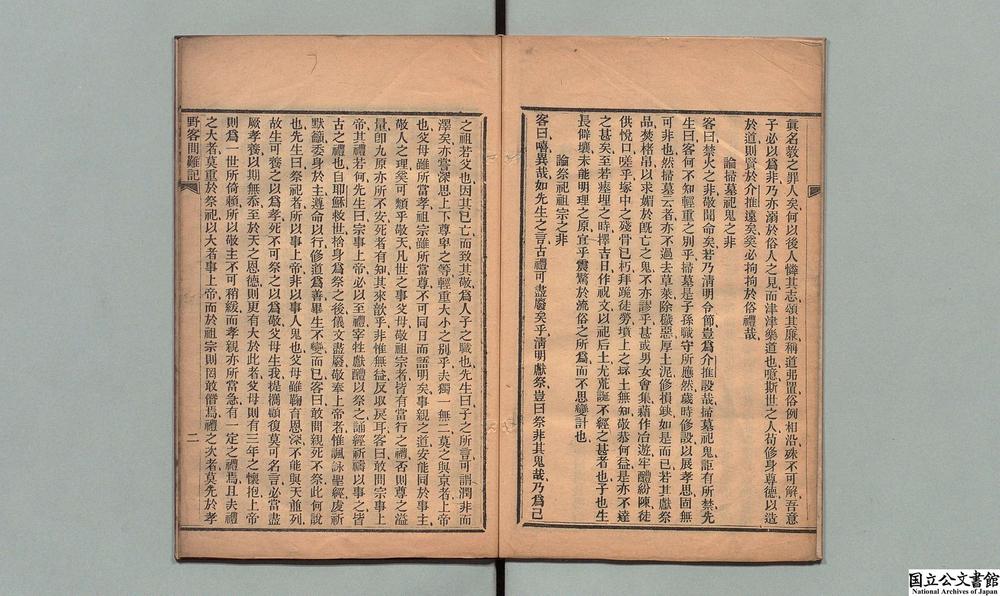 眞名教之罪人矣何以後人憐其志頌其廉稱道弗置俗例相沿殊不可解吾意
子必以爲非乃亦溺於俗人之見而津津樂道也噫斯世之人苟修身尊德以造
於道則賢於介推遠矣奚必拘拘於俗禮哉
論掃墓祀鬼之非
客曰禁火之非敬聞命矣若乃淸明令節豈爲介推設哉掃墓祀鬼詎有所禁先
生曰客何不知輕重之別乎掃墓是子孫職守所應然歲時修設以展孝思固無
可非也然掃墓云者亦不過去草萊除穢惡厚土泥修損缺如是而已若其獻祭
品焚楮帛以求媚於既亡之鬼不亦謬乎甚或男女會集藉作冶遊牢醴紛陳徒
供悅口嗟乎塚中之殘骨已朽拜跪徒勞墳上之坏土無知敬恭何益是亦不達
之甚矣至若瘞埋之時擇吉日作祝文以祀后土尤荒誕不經之甚者也子也生
長僻壤未能明理之原宜乎震驚於流俗之所爲而不思變計也
論祭祀祖宗之非
客曰嘻異哉如先生之言古禮可盡廢矣乎淸明獻祭豈曰祭非其鬼哉乃爲己
之祖若父也因其已亡而致其敬爲人子之職也先生曰子之所言可謂潤非而
澤矣亦嘗深思上下尊卑之等輕重大小之別乎夫獨一無二莫之與京者上帝
也父母雖所當孝祖宗雖所當尊不可同日而語明矣事親之道安能同於事主
敬人之理奚可類乎敬天凡世之事父母敬祖宗者皆有當行之禮否則尊之溢
量卽九原亦所不安死者有知其來歆乎非惟無益反取戾耳客曰敢問宗事上
帝其禮若何先生曰宗事上帝必以至禮宰牲獻醴以祭之誦經祈禱以事之皆
古之禮也自耶穌救世捨身爲祭之後儀文盡廢敬奉上帝者惟諷詠聖經虔祈
默籲委身於主遵命以行修道爲善畢生不變而已客曰敢問親死不祭此何說
也先生曰祭祀者所以事上帝非以事人鬼也父母雖鞠育恩深不能與天並列
故生可養之以爲孝死不可祭之以爲敬父母生我提攜顧復莫可名言必當盡
厥孝養以期無忝至於天之恩德則更有大於此者父母則有三年之懷抱上帝
則爲一世所倚賴所以敬主不可稍緩而孝親亦所當急有一定之禮焉且夫禮
之大者莫重於祭祀以大者事上帝而於祖宗則罔敢僭焉禮之次者莫先於孝
野客問難記
二
国立公文書館
National Archives of Japan